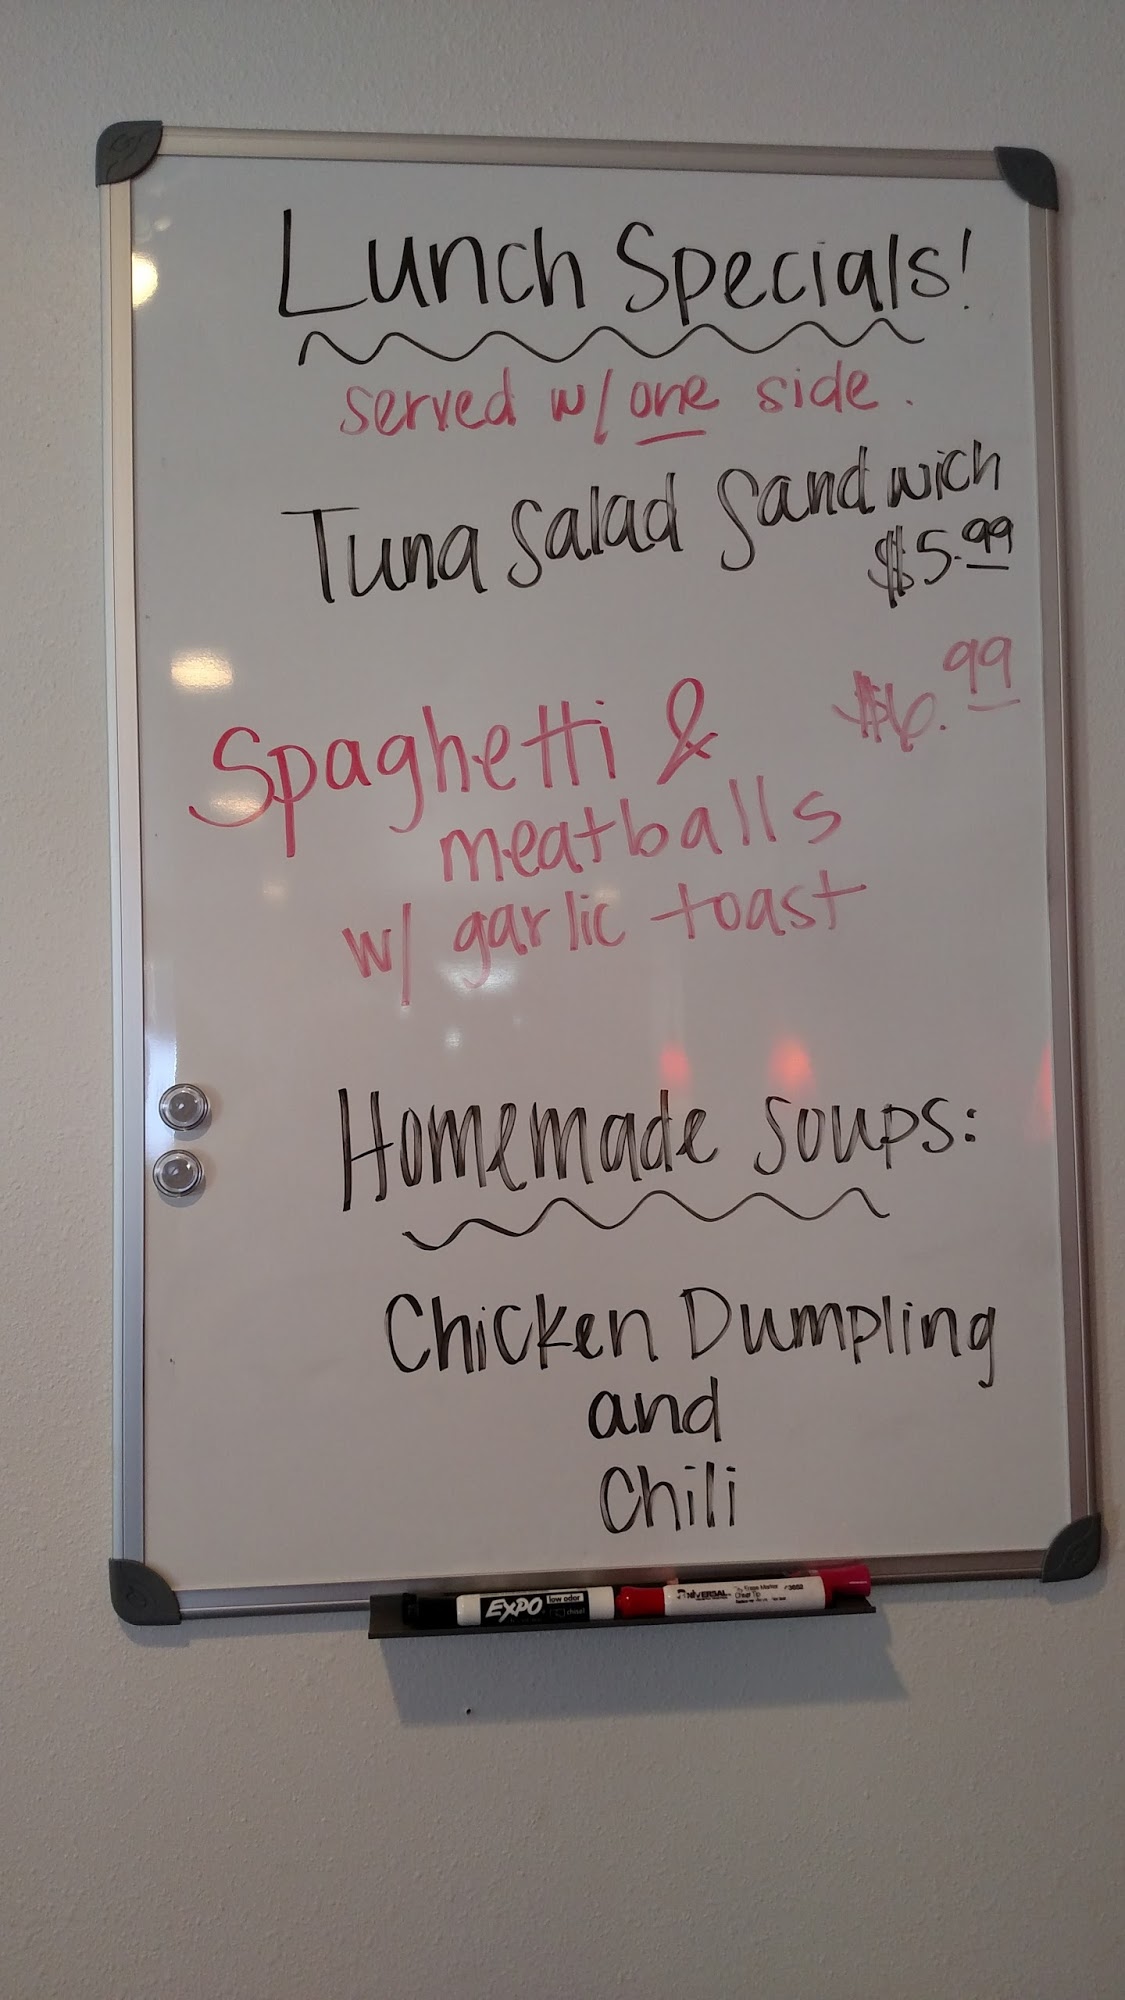 Lunch Specials!
served w/ one side.
Tuna Salad Sandwich
$5.99
Spaghetti & $6.99
meatballs
w/ garlic toast
Homemade soups:
Chicken Dumpling
and
Chili
EXPO low odor chisel
UNIVERSAL Dry Erase Marker
Chisel Tip